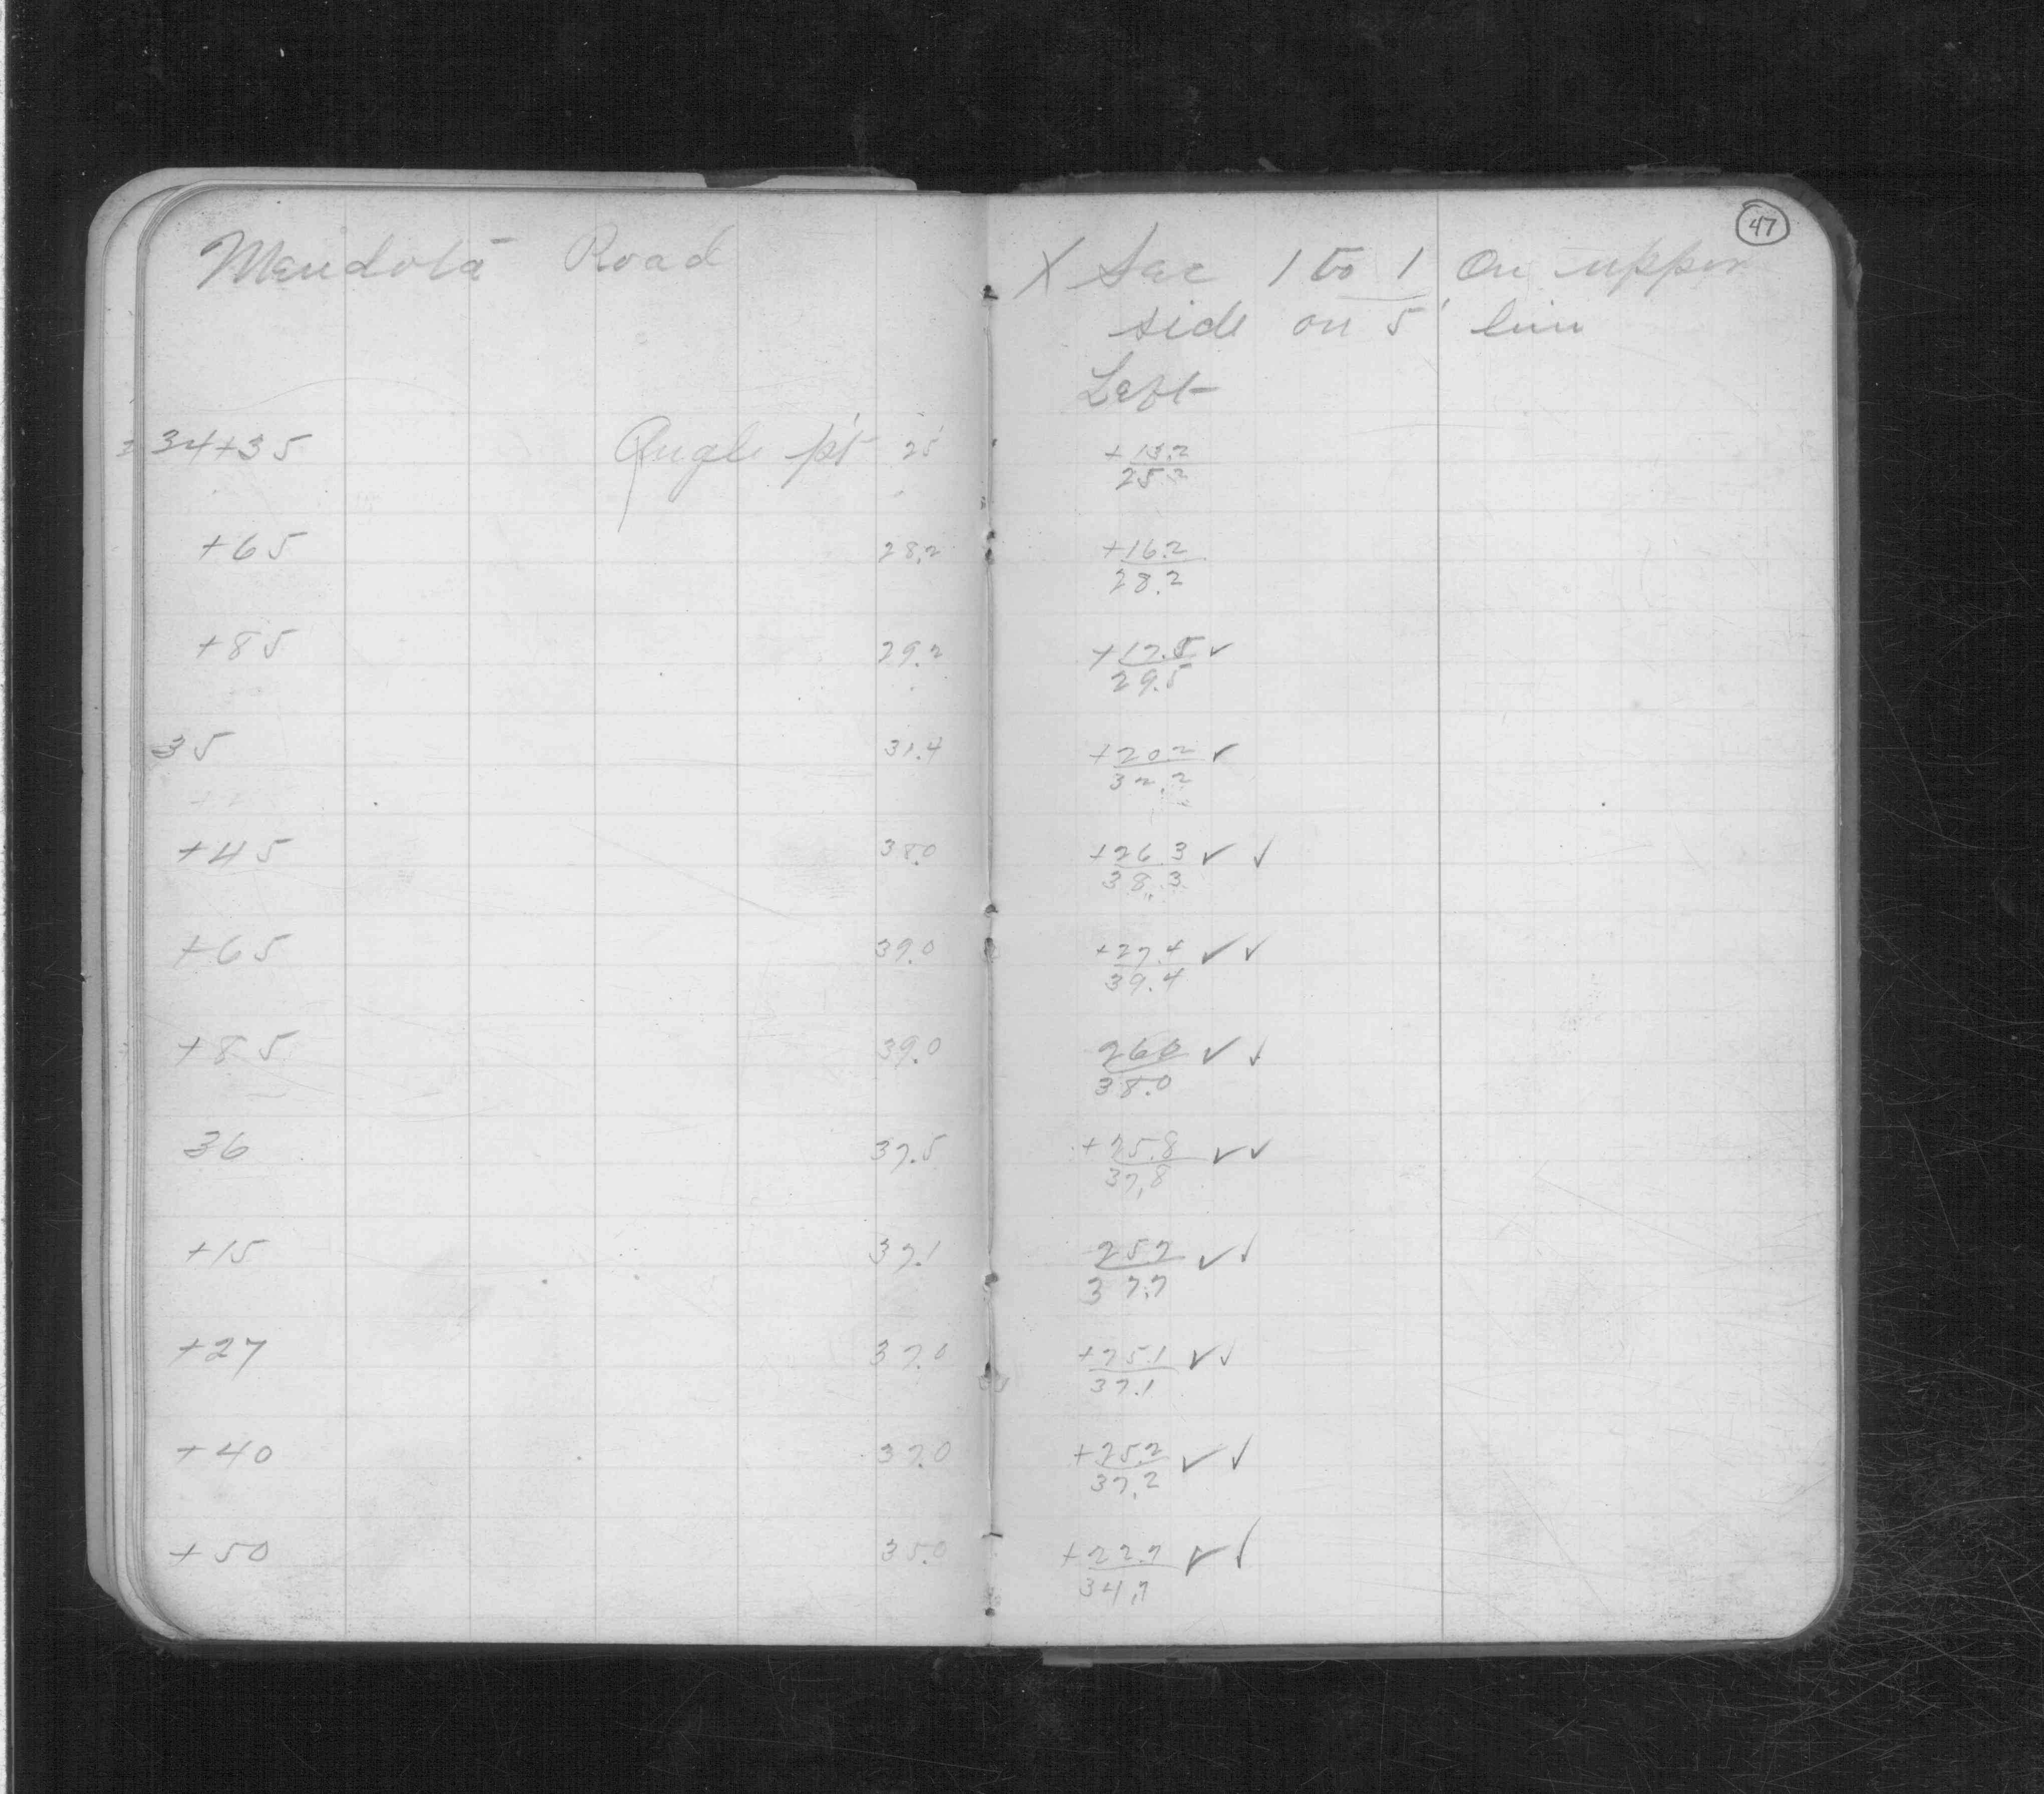 47
Mendota Road
X Sec 1 to 1 On upper
side on 5' line
Left
34+35 Angle p't 25 +13.2
25.2
+65 28.2 +16.2
28.2
+85 29.2 +17.5 ✓
29.5
35 31.4 +20.2 ✓
32.2
+45 38.0 +26.3 ✓ ✓
38.3
+65 39.0 +27.4 ✓ ✓
39.4
+85 39.0 26.0 ✓ ✓
38.0
36 37.5 +25.8 ✓ ✓
37.8
+15 37.1 25.7 ✓ ✓
37.7
+27 37.0 +25.1 ✓ ✓
37.1
+40 37.0 +25.2 ✓ ✓
37.2
+50 35.0 +22.7 ✓ ✓
34.7